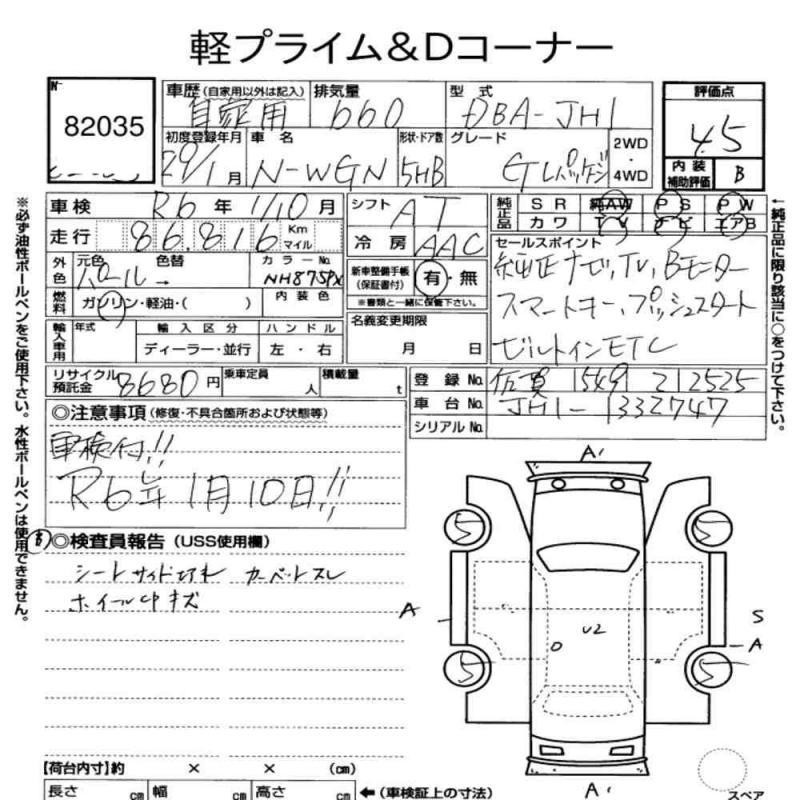 軽プライム&Dコーナー
No 82035
車歴 (自家用以外は記入) 自家用
排気量 660
型式 DBA-JH1
評価点 4.5
初度登録年月 29/1月
車名 N-WGN
形状・ドア数 5HB
グレード Gパッケージ
2WD・4WD
内装補助評価 B
車検 R6年1/10月
シフト AT
純正品 SR 純AW PS PW
カワ TV ナビ エアB
走行 86,816 Km マイル
冷房 AAC
外色 元色 パール → 色替 カラーNo. NH875PX
新車整備手帳(保証書付) 有・無
※書類と一緒に保管下さい。
セールスポイント
純正ナビ、TV、Bモニター
スマートキー、プッシュスタート
ビルトインETC
燃料 ガソリン・軽油・( ) 内装色
名義変更期限 月 日
輸入車用 年式 輸入区分 ディーラー・並行 ハンドル 左・右
リサイクル預託金 8680円
乗車定員 人
積載量 t
登録No. 佐賀 212525
車台No. JH1-1332747
シリアルNo.
◎注意事項 (修復・不具合箇所および状態等)
車検付!!
R6年1月10日!!
B ◎検査員報告 (USS使用欄)
シートサイド カーペットスレ
ホイール中キズ
A1
5 5
A S
U2 A
5 5
A1
スペア
【荷台内寸】約 × × (cm)
長さ cm 幅 cm 高さ cm ←(車検証上の寸法)
※必ず油性ボールペンをご使用下さい。水性ボールペンは使用できません。
←純正品に限り該当に○をつけて下さい。